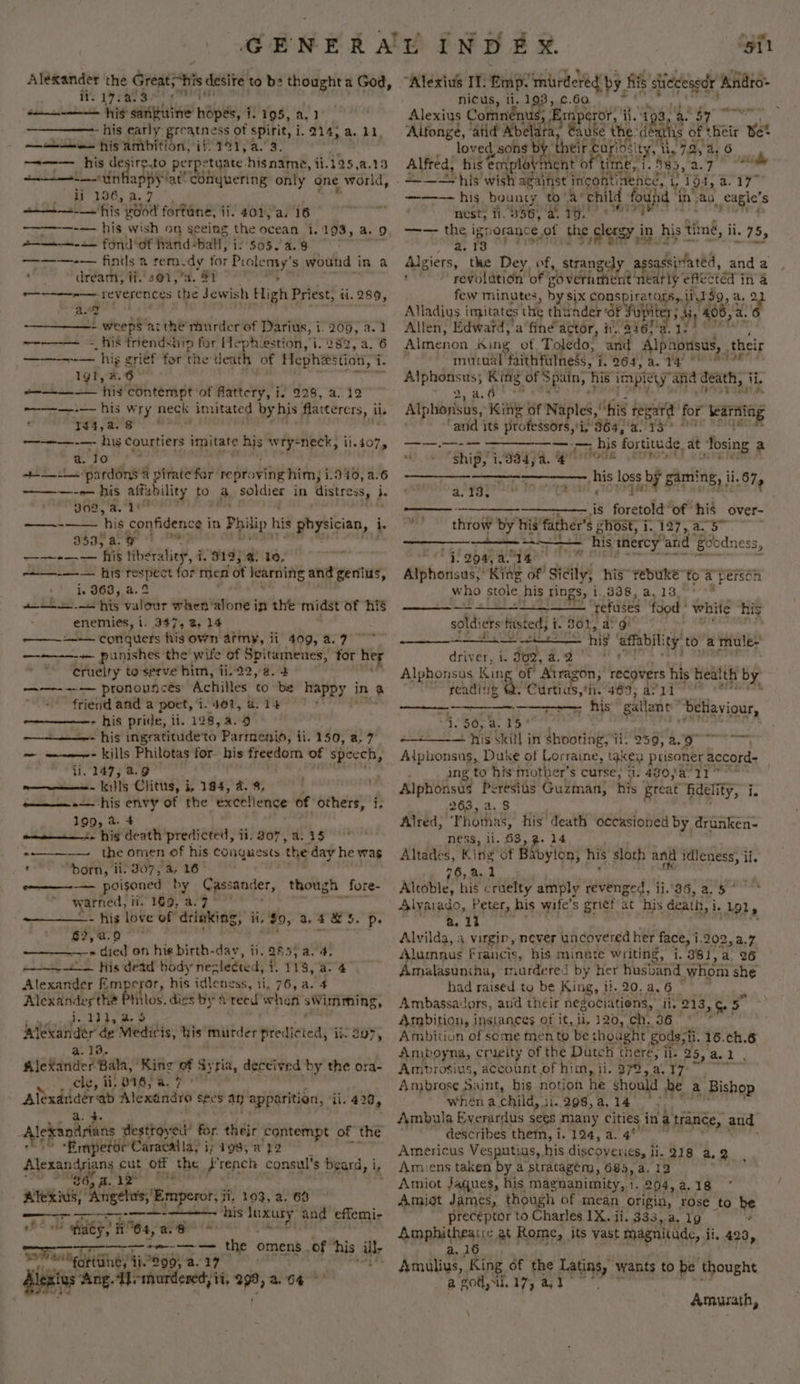 GENERAL INDEX. 511
Alexander the Great, his desire to be thought a God,
ii. 17. a. 3
——— his sanguine hopes, i. 195, a. 1
——— his early greatness of spirit, i. 214, a. 11,
——— his ambition, ii. 191, a. 3.
——— his desire to perpetuate his name, ii. 125, a. 13
——— unhappy at conquering only one world,
ii 196, a. 7
——— his good fortune, ii. 401, a. 16
——— his wish on seeing the ocean i. 193, a. 9
——— fond of hand-ball, i. 505. a. 8
——— finds a remedy for Ptolemy's wound in a
dream, ii. 501, a. 21
——— reverences the Jewish High Priest, ii. 289,
——— weeps at the murder of Darius, i. 209, a. 1
——— his friendship for Hephæstion, i. 282, a. 6
——— his grief for the death of Hephæstion, i.
191, a. 6
——— his contempt of flattery, i. 228, a. 12
——— his wry neck imitated by his flatterers, ii.
144, a. 8
——— his courtiers imitate his wry-neck, ii. 407,
a. 10
——— pardons a pirate for reproving him, i. 340, a. 6
——— his affability to a soldier in distress, i.
302, a. 1
——— his confidence in Philip his physician, i.
353, a. 9
——— his liberality, i. 312, a. 10,
——— his respect for men of learning and genius,
i. 363, a. 2
——— his valour when alone in the midst of his
enemies, i. 347, a, 14
——— conquers his own army, ii 409, a. 7
——— punishes the wife of Spitamenes, for her
cruelty to serve him, ii. 22, a. 4
——— pronounces Achilles to be happy in a
friend and a poet, i. 401, a. 14
——— his pride, ii. 128, a. 9
——— his ingratitude to Parmenio, ii. 150, a. 7
——— kills Philotas for his freedom of speech,
ii. 147, a. 9
——— kills Clitus, i, 184, a. 8,
——— his envy of the excellence of others, i.
199, a. 4
——— his death predicted, ii. 307, a. 15
——— the omen of his conquests the day he was
born, ii. 307, a, 16
——— poisoned by Cassander, though fore-
warned, ii. 169, a. 7
——— his love of drinking, ii, 80, a. 4 & 5. p.
62, a. 9
——— died on his birth-day, ii. 285, a. 4.
——— his dead body neglected, i. 118, a. 4
Alexander Emperor, his idleness, ii, 76, a. 4
Alexander the Philos. dies by a reed when swimming,
i. 131, a. 5
Alexander de Medicis, his murder predicted, ii. 307,
a. 13.
Alexander Bala, King of Syria, deceived by the ora-
cle, ii. 316, a. 7
Alexander ab Alexandro sees an apparition, ii. 420,
a. 4.
Alexandrians destroyed for their contempt of the
Emperor Caracalla, i, 198, a 12
Alexandrians cut off the French consul's beard, i,
26, a. 12
Alexius, Angelus, Emperor, ii, 193, a. 60
——— his luxury and effemi-
nacy, ii 64, a. 8
——— the omens of his ill-
fortune, ii. 299, a. 17
Alexius Ang. II. murdered, ii. 298, a. 64
Alexius II. Emp. murdered by his successor Andro-
nicus, ii. 193, c. 60
Alexius Comnenus, Emperor, ii. 193, a. 57
Alfonge, and Abelara, cause the deaths of their be-
loved sons by their curiosity, ii, 72, a, 6
Alfred, his employment of time, i. 585, a. 7
——— his wish against incontinence, i, 194, a. 17
——— his bounty to a child found in an eagle's
nest, ii. 356, a. 19.
——— the ignorance of the clergy in his time, ii. 75,
a. 13
Algiers, the Dey of, strangely assassinated, and a
revolution of government nearly effected in a
few minutes, by six conspirators, ii. 159, a. 21
Alladius imitates the thunder of Jupiter, ii, 406, a. 6
Allen, Edward, a fine actor, ii. 246, a. 1.
Almenon King of Toledo, and Alphonsus, their
mutual faithfulness, i. 264, a. 14
Alphonsus, King of Spain, his impiety and death, ii.
2, a. 6
Alphonsus, King of Naples, his regard for learning
and its professors, i. 364, a. 13
——— his fortitude at losing a
ship, i. 334, a. 4
——— his loss by gaming, ii. 67,
a. 13,
——— is foretold of his over-
throw by his father's ghost, i. 127, a. 5
——— his mercy and goodness,
i. 294, a. 14
Alphonsus, King of Sicily, his rebuke to a person
who stole his rings, i. 338, a, 13
——— refuses food while his
soldiers fasted, i. 301, a. 9
——— his affability to a mule-
driver, i. 302, a. 2
Alphonsus King of Arragon, recovers his health by
reading Q. Curtius, ii. 469, a. 11
——— his gallant behaviour,
i. 50, a. 15
——— his skill in shooting, ii. 259, a. 9
Alphonsus, Duke of Lorraine, taken prisoner accord-
ing to his mother's curse, ii. 480, a 11
Alphonsus Peresius Guzman, his great fidelity, i.
263, a. 8
Alred, Thomas, his death occasioned by drunken-
ness, ii. 63, a. 14
Altades, King of Babylon, his sloth and idleness, ii.
76, a. 1
Altoble, his cruelty amply revenged, ii. 36, a. 5
Alvarado, Peter, his wife's grief at his death, i. 191,
a. 11
Alvilda, a virgin, never uncovered her face, i. 202, a. 7
Alumnus Francis, his minute writing, i. 381, a. 26
Amalasuntha, murdered by her husband whom she
had raised to be King, ii. 20, a. 6
Ambassadors, and their negociations, ii. 213, c. 5
Ambition, instances of it, ii. 120, ch. 36
Ambition of some men to be thought gods, ii. 16. ch. 6
Amboyna, cruelty of the Dutch there, ii. 25, a. 1.
Ambrosius, account of him, ii. 272, a. 17
Ambrose Saint, his notion he should be a Bishop
when a child, ii. 298, a. 14
Ambula Everardus sees many cities in a trance, and
describes them, i. 124, a. 4
Americus Vesputius, his discoveries, ii. 218 a. 2
Amiens taken by a stratagem, 685, a. 12
Amiot Jaques, his magnanimity, i. 204, a. 18
Amiot James, though of mean origin, rose to be
preceptor to Charles IX. ii. 333, a. 19
Amphitheatre at Rome, its vast magnitude, ii. 423,
a. 16
Amulius, King of the Latins, wants to be thought
a god, ii. 17, a, 1
Amurath,